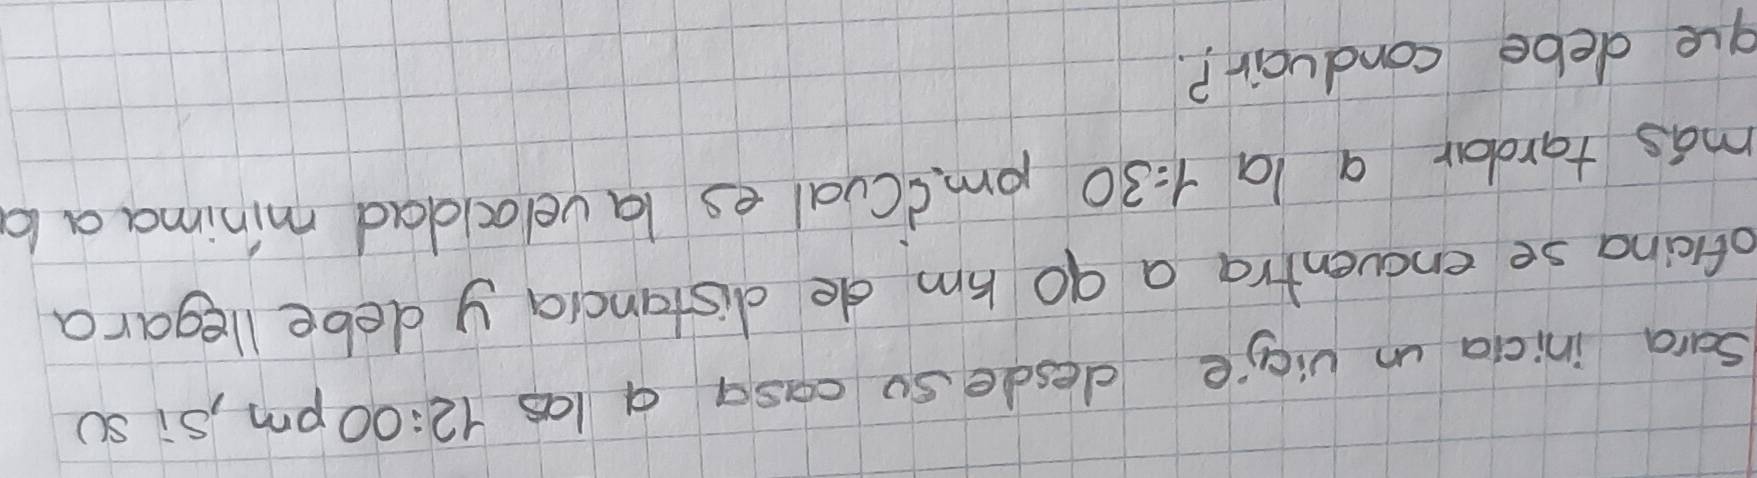 Sara inicia un viaje desde su casa a las 12:00 pm, si su
oficina se encuentra a 90 km de distancia y debe llegar a
más tardar a la 1:30 pm. ¿Cual es la velocidad mínima a la
que debe conducir?